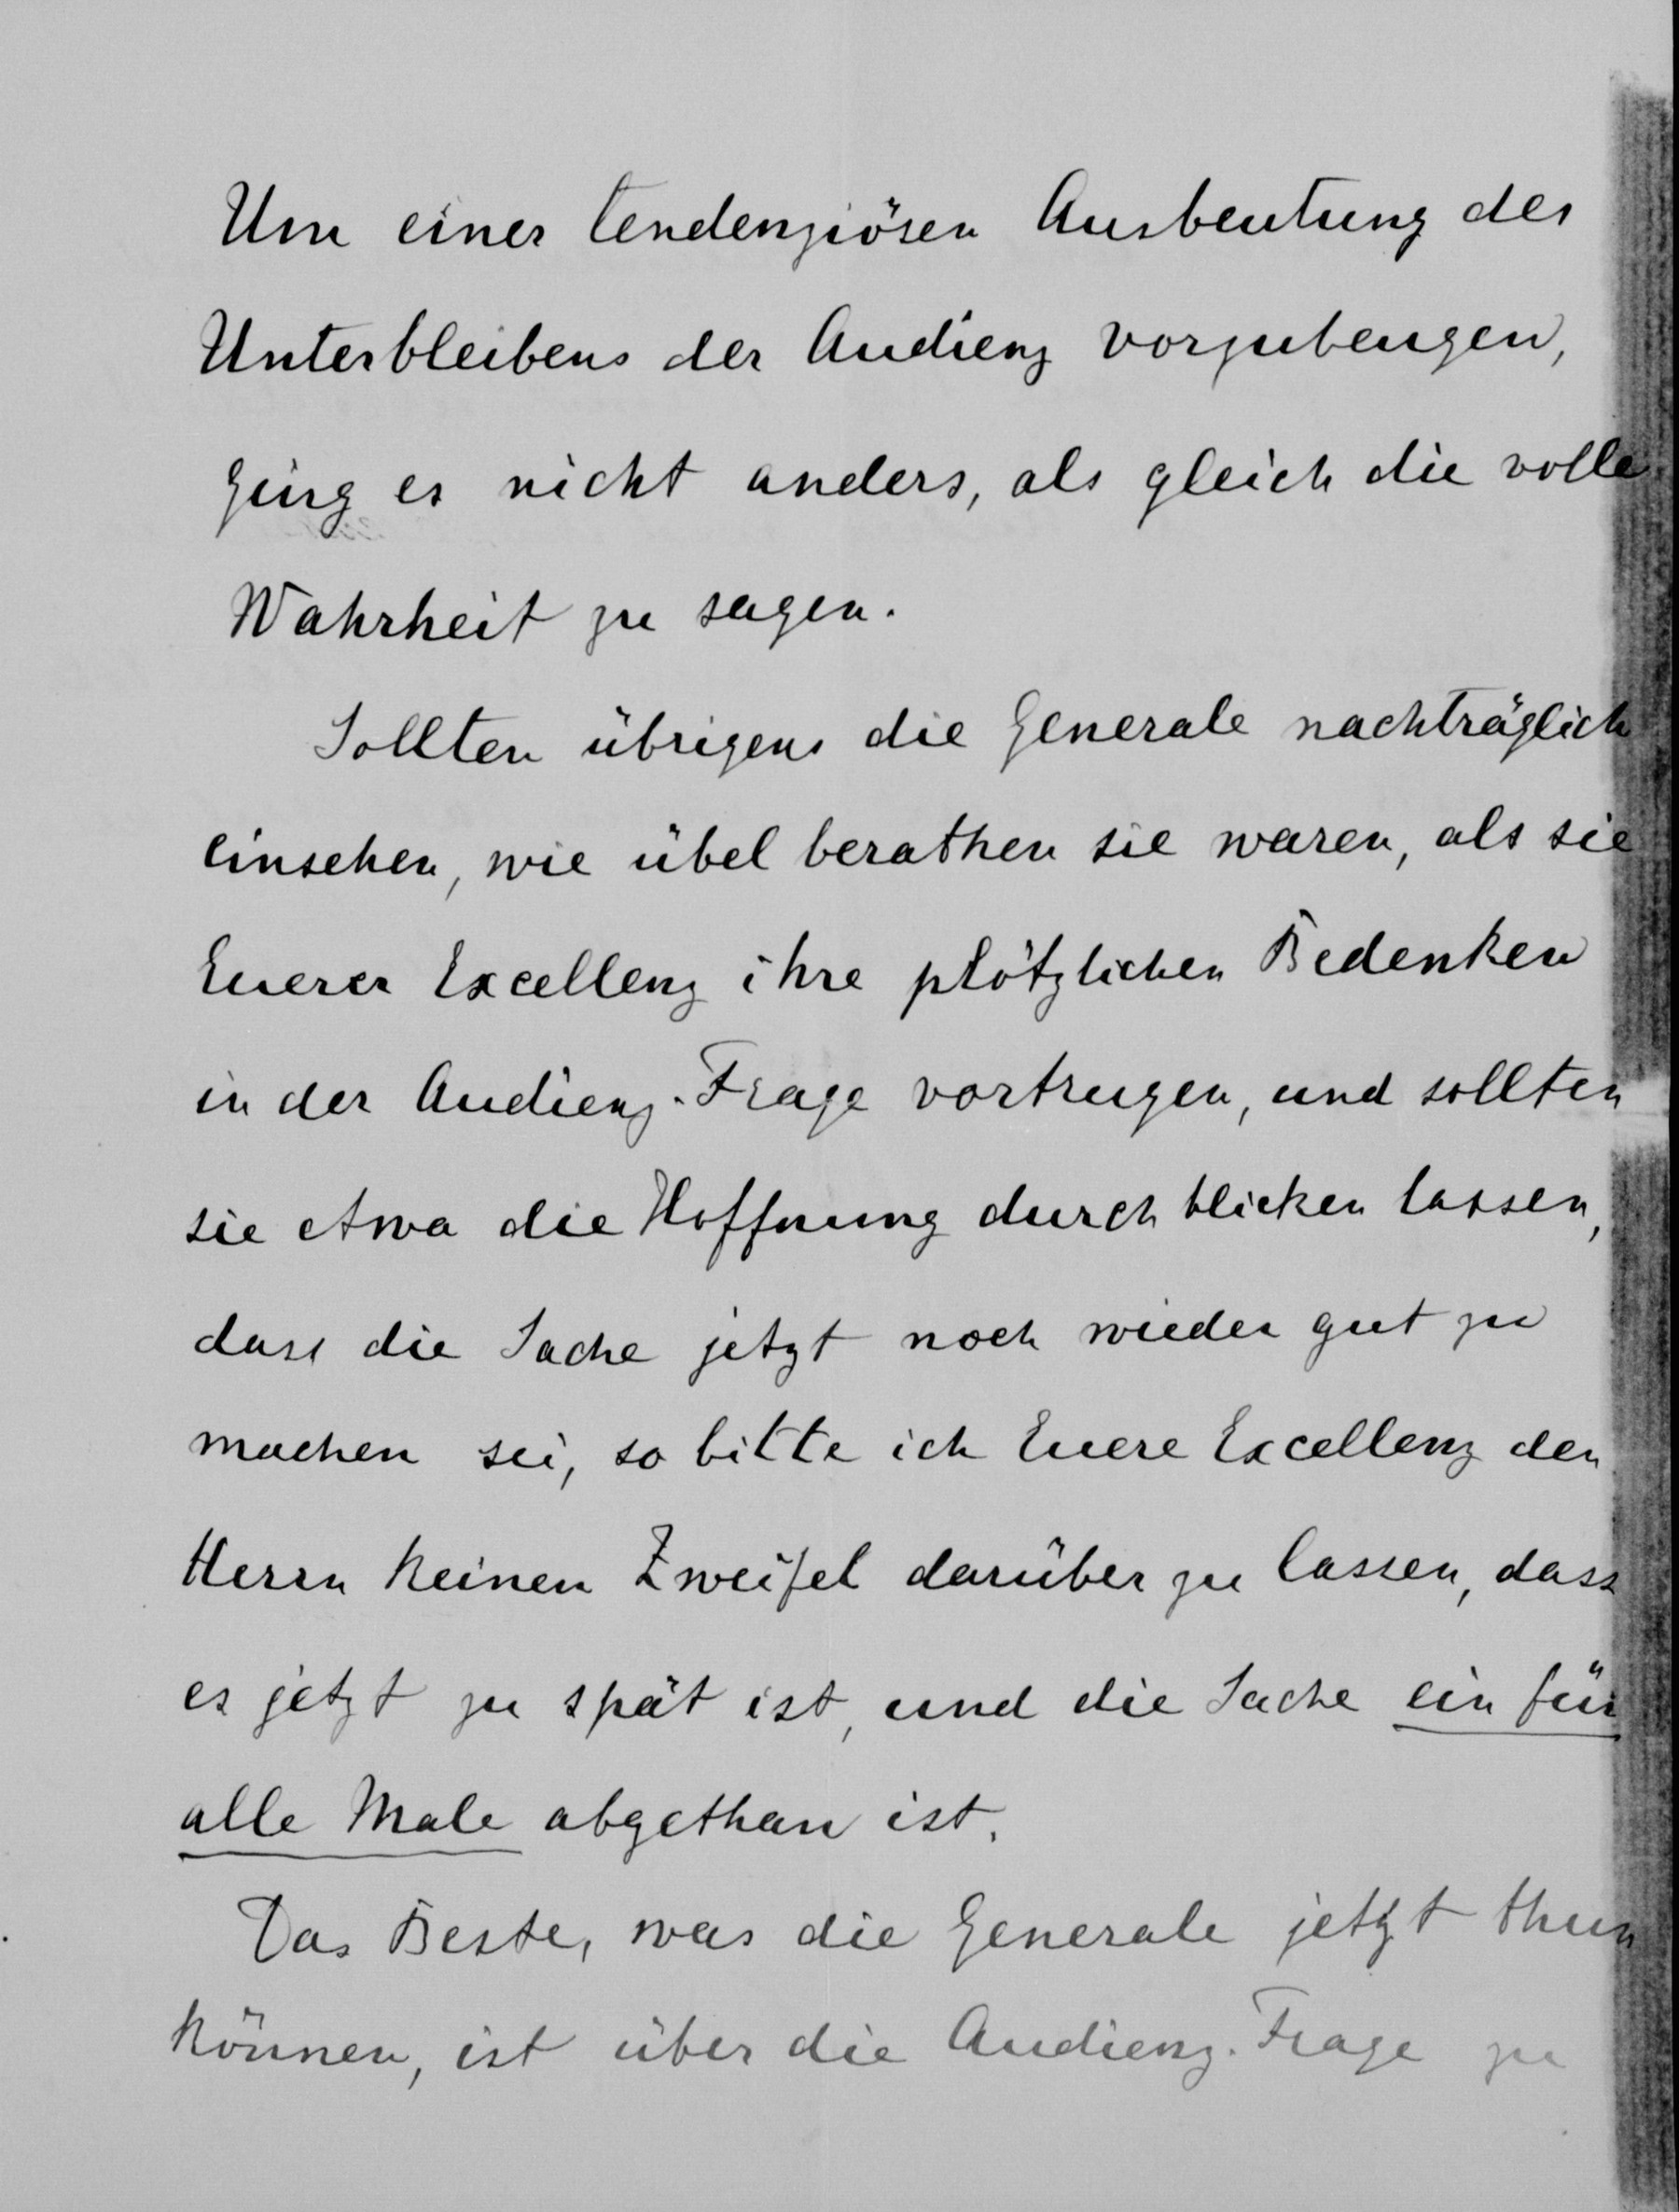 Um einer tendenziösen Ausbeutung des
Unterbleibens der Audienz vorzubeugen,
ging es nicht anders, als gleich die volle
Wahrheit zu sagen.
Sollten übrigens die Generale nachträglich
einsehen, wie übel berathen sie waren, als sie
Euerer Excellenz ihre plötzlichen Bedenken
in der Audienz-Frage vortrugen, und sollten
sie etwa die Hoffnung durchblicken lassen,
dass die Sache jetzt noch wieder gut zu
machen sei, so bitte ich Euere Excellenz den
Herrn keinen Zweifel darüber zu lassen, dass
es jetzt zu spät ist, und die Sache ein für
alle Male abgethan ist.
Das Beste, was die Generale jetzt thun
können, ist über die Audienz-Frage zu